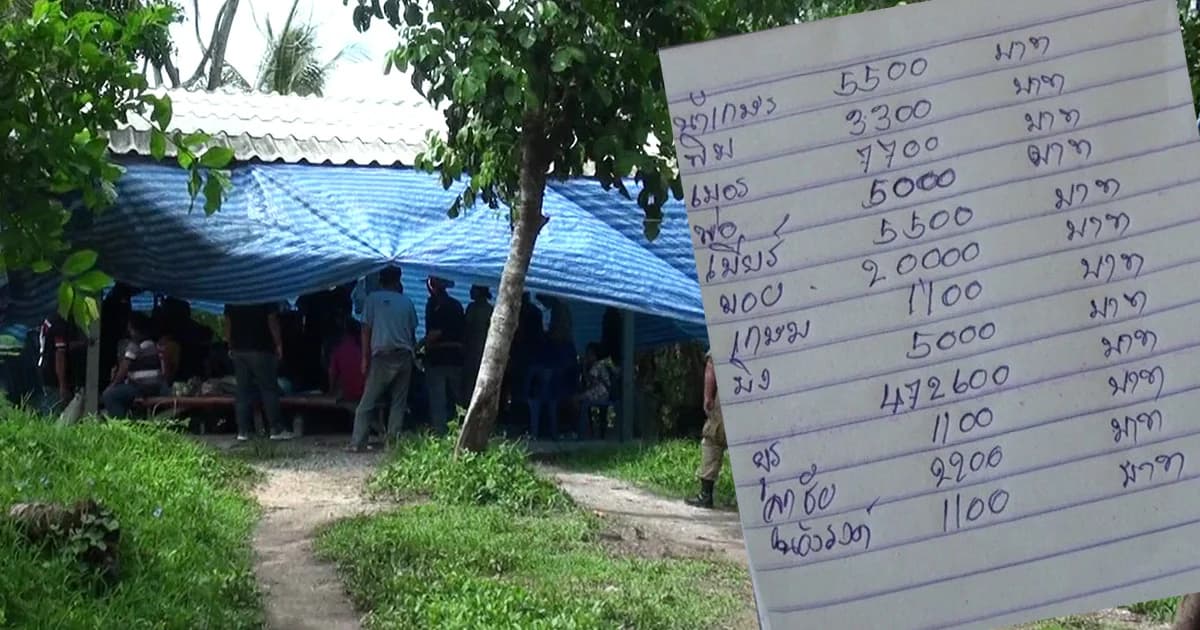 น้าเกษร 5500 บาท
พิม 3300 บาท
เมอร 7700 บาท
พ่อ 5000 บาท
เบียร์ 5500 บาท
มอย 20000 บาท
เกษม 1100 บาท
มิง 5000 บาท
472600 บาท
ยุร 1100 บาท
สาชัย 2200 บาท
1100 บาท